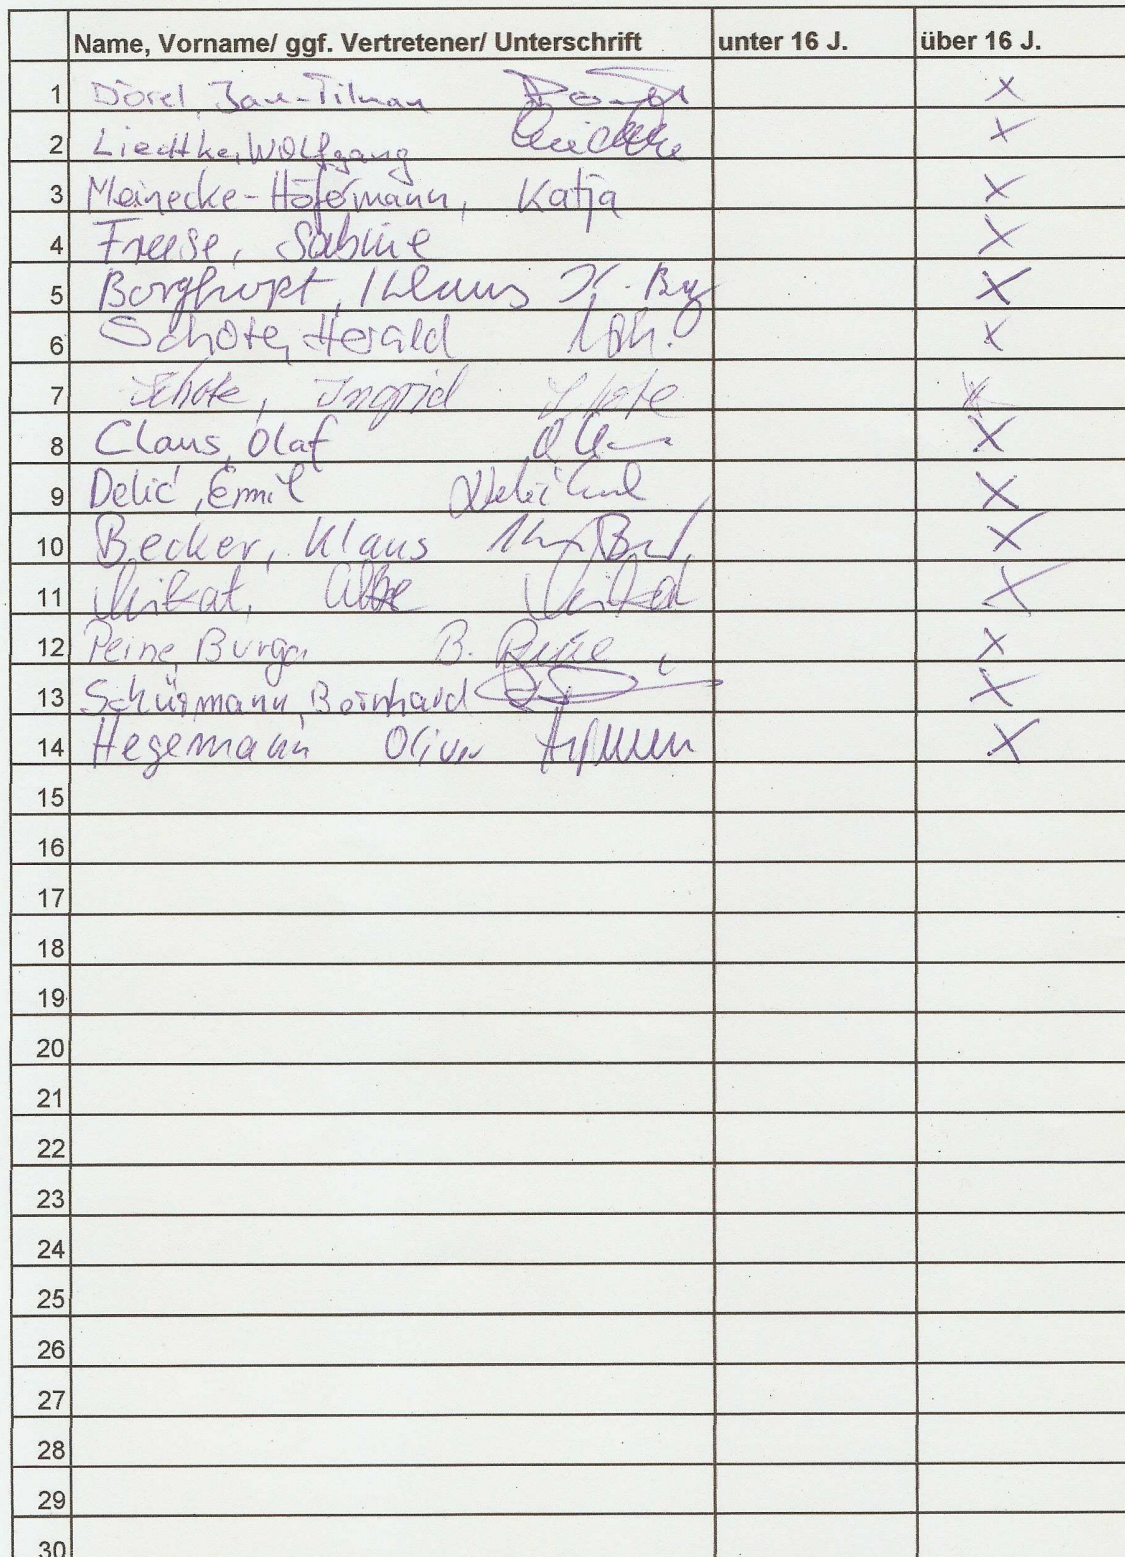 Name, Vorname/ ggf. Vertretener/ Unterschrift unter 16 J. über 16 J.
1 Dörel, Jan-Tilman X
2 Liedtke, Wolfgang Liedtke X
3 Meinecke-Höfermann, Katja X
4 Freese, Sabine X
5 Klaus X
6 Schote, Herald X
7 Schote, Ingrid X
8 Claus, Olaf X
9 Delić, Emil X
10 Becker, Klaus X
11 X
12 Peine, Burga B. Peine X
13 Schürmann, Bernhard X
14 Hegemann Oliver X
15
16
17
18
19
20
21
22
23
24
25
26
27
28
29
30